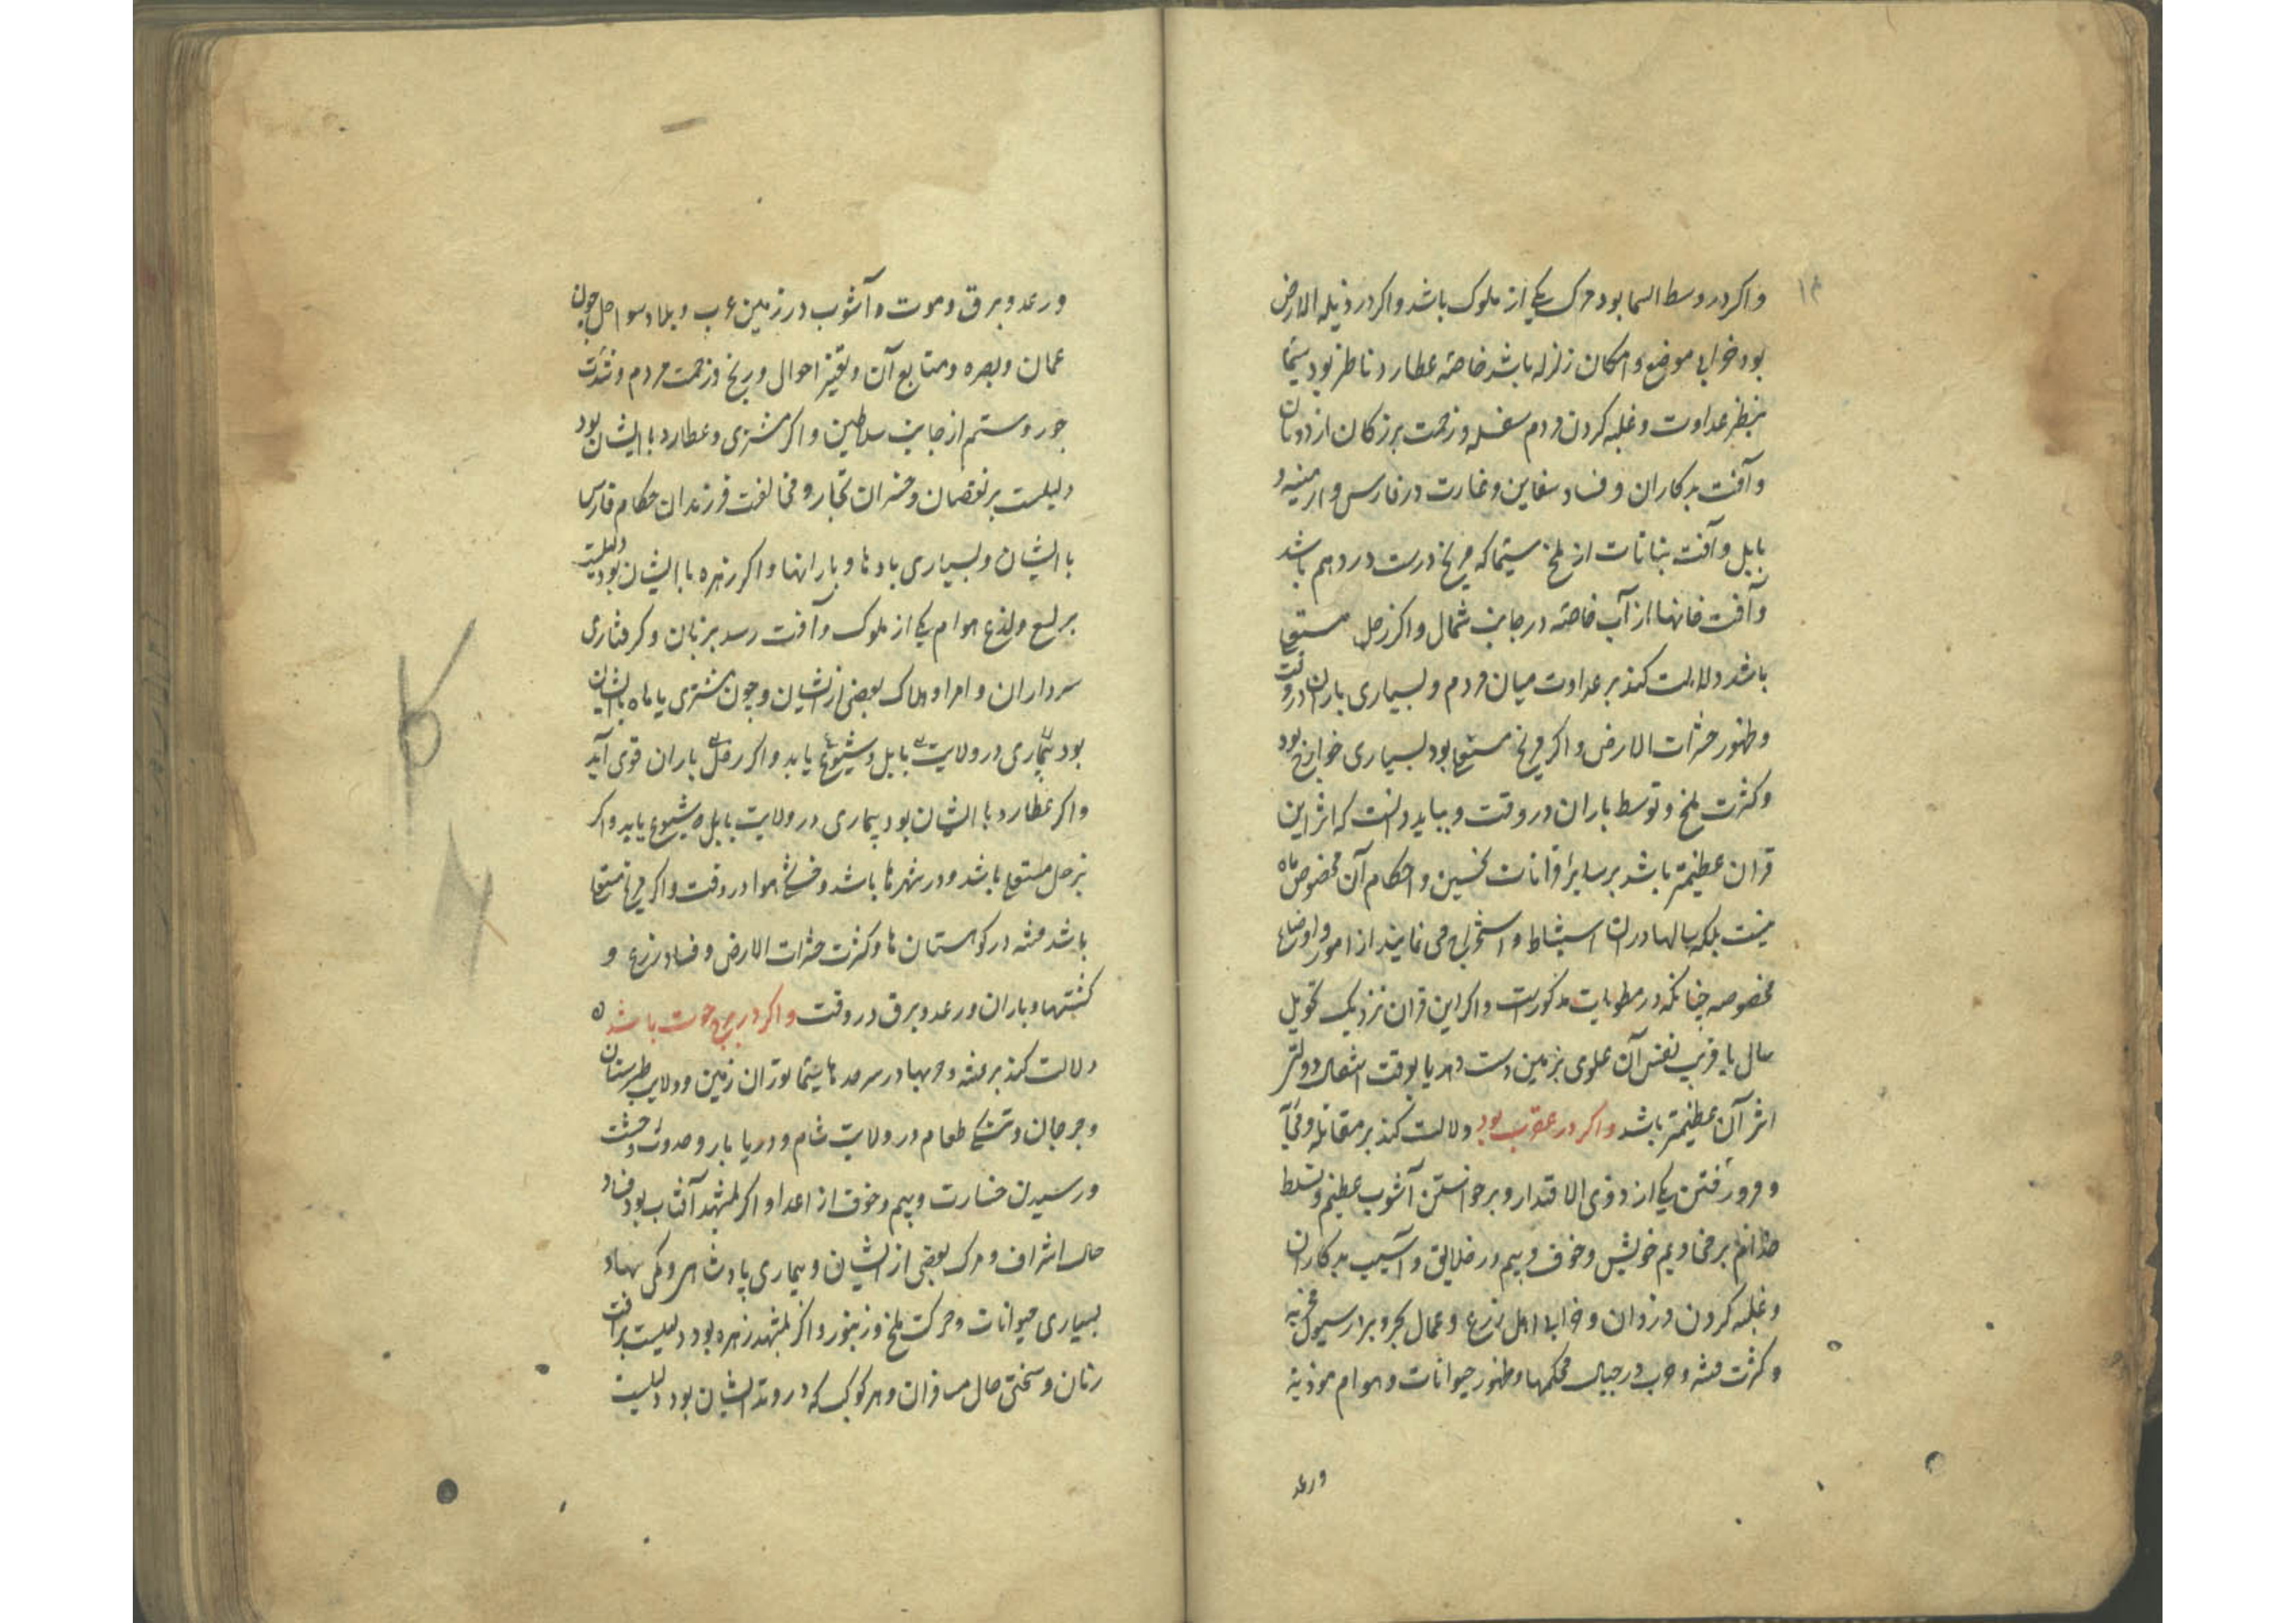 واکر در وسط السما بود مرک یکی از ملوک باشد واکر در وتد الارض
بود خرابی موضع و امکان زلزله باشد خاصه عطارد ناظر بود سیما
بنظر عداوت و غلبه کردن مردم سفله و زحمت بزرکان از دونان
وآفت بدکاران و فساد سفاین و غارت در فارس و ارمنیه و
بابل وآفت نباتات از ملخ سیما که مریخ درست در دهم باشد
وآفت خانها از آب خاصه در جانب شمال واکر زحل مستعلی
باشد دلالت کند بر عداوت میان مردم و بسیاری باران در وقت
وظهور حشرات الارض واکر مریخ مستعلی بود بسیاری خوارج بود
وکثرت ملخ و توسط باران در وقت و بباید دانست که اثر این
قران عظیمتر باشد بر سایر قرانات نحسین و احکام آن مخصوص ماه
نیست بلکه سالها در ان استنباط و استخراج می نمایند از امور و اوضاع
مخصوصه چنانکه در مطولات مذکورست واکر این قران نزدیک تحویل
سال یا قرب نفس آن علوی بزمین دست دهد یا بوقت انتقال دولتی
اثر آن عظیمتر باشد واکر در عقرب بود دلالت کند بر مقاتله و
و فرو رفتن یکی از ذوی الاقتدار و برخواستن آشوب عظیم و تسلط
خدام بر مخادیم خویش و خوف و بیم در خلایق و آسیب بدکاران
و غلبه کردن دزدان و خرابی اهل زرع و عمال بحر و بر از سیول مخربه
و کثرت فتنه و حرب در جبال محکمها و ظهور حیوانات و هوام موذیه
ورعد
ورعد و برق و موت و آشوب در زمین عرب و بلاد سواحل چون
عمان و بصره و متابع آن و تغیر احوال و رنج و زحمت مردم و شدت
جور و ستم از جانب سلاطین واکر مشتری و عطارد با ایشان بود
دلیلست بر نقصان و خسران تجار و مخالفت فرزندان حکام فارس
با ایشان و بسیاری بادها و بارانها واکر زهره با ایشان بود دلیلست
بر لسع و لذع هوام یکی از ملوک و آفت رسد بزنان و کرفتاری
سرداران و امرا و هلاک بعضی از ایشان و چون مشتری یا ماه با ایشان
بود بیماری در ولایت بابل و شیوع یابد واکر زحل باران قوی آید
واکر عطارد با ایشان بود بیماری در ولایت بابل شیوع یابد واکر
زحل مستعلی باشد و در شهرها باشد و هوا در وقت واکر مریخ مستعلی
باشد فتنه در کوهستان ها و کثرت حشرات الارض و فساد زرع و
کشتها و باران ورعد و برق در وقت واکر در برج حوت باشد ه
دلالت کند بر فتنه و حربها در سرحدها سیما توران زمین و ولایت طبرستان
و جرجان و تنکی طعام در ولایت شام و دریا بار و حدوث وحشت
ورسیدن خسارت و بیم و خوف از اعدا و اکر بمشهد آفتاب بود فساد
حال اشراف و مرک بعضی از ایشان و بیماری پادشاهی
بسیاری حیوانات و حرکت ملخ و زنبور واکر بمشهد زهره بود دلیلست بر آفت
زنان و سختی حال مسافران و هر کوکب که در وتد ایشان بود دلیلست